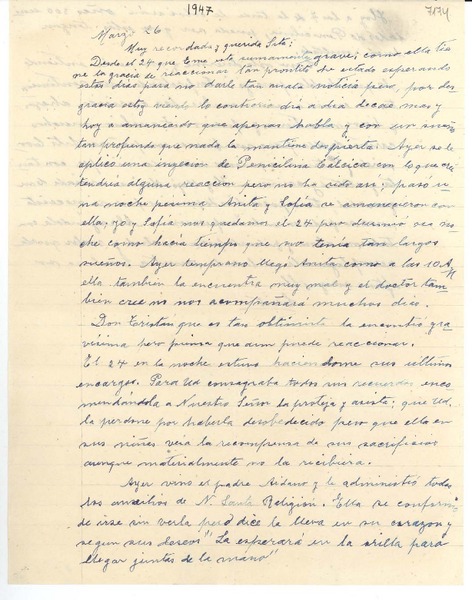 1947
7174
Marzo 26
Muy recordada y querida Sita:
Desde el 24 que Eme está sumamente grave; como ella tie
ne la gracia de reaccionar tan prontito he estado esperando
estos días para no darle tan mala noticia pero, por des-
gracia estoy viendo lo contrario día a día decae mas y
hoy a amanecido que apenas habla y con un sueño
tan profundo que nada la mantiene despierta. Ayer se le
aplicó una inyección de Penicilina Cálsica con lo que
tendría alguna reacción pero no ha sido así; paso u
na noche pesima Anita y Sofía se amanecieron con
ella, yo y Sofía nos quedamos el 24 pero durmió esa no
che como hacía tiempo que no tenía tan largos
sueños. Ayer temprano llegó Anita como a las 10 A.M
ella también la encuentra muy mal y el doctor tam
bién cree no nos acompañará muchos días.
Don Tristán que es tan optimista la encontró gra-
vísima pero piensa que aun puede reaccionar.
El 24 en la noche estuvo haciendome sus últimos
encargos. Para Ud consagraba todos sus recuerdos enco
mendándola a Nuestro Señor la proteja y asista; que Ud.
la perdone por haberla desobedecido pero que ella en
sus niñes veía la recompensa de sus sacrificios
aunque materialmente no la recibiera.
Ayer vino el padre Aidano y le administró todos
los auxilios de N. Santa Religión. Ella se conforma
de irse sin verla pero dice la lleva en su corazon y
segun sus deseos "La esperará en la orilla para
llegar juntas de la mano"